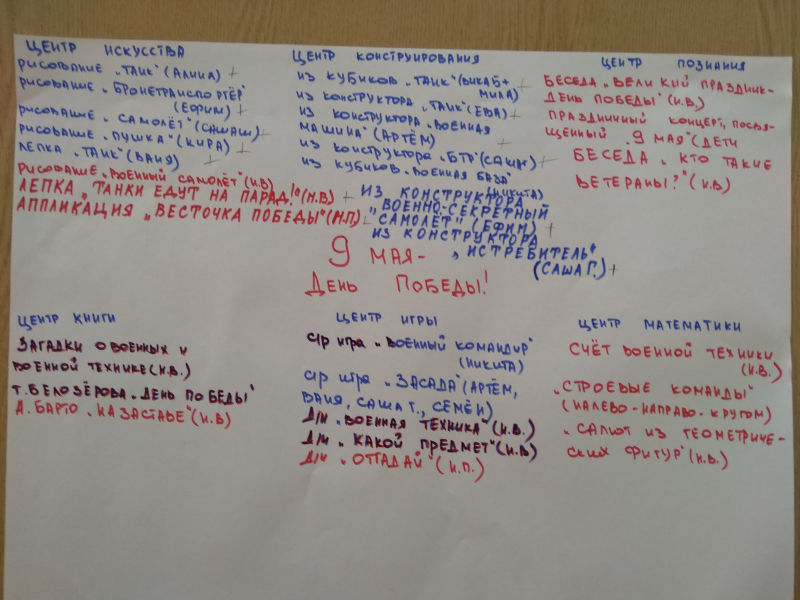 ЦЕНТР ИСКУССТВА
РИСОВАНИЕ „ТАНК" (АЛИНА) +
РИСОВАНИЕ „БРОНЕТРАНСПОРТЁР"
(ЕФИМ) +
РИСОВАНИЕ „САМОЛЁТ" (САШАШ) +
РИСОВАНИЕ „ПУШКА" (КИРА) +
ЛЕПКА „ТАНК" (ВАНЯ) +
РИСОВАНИЕ „ВОЕННЫЙ САМОЛЁТ" (Н.В)
ЛЕПКА „ТАНКИ ЕДУТ НА ПАРАД!" (Н.В) +
АППЛИКАЦИЯ „ВЕСТОЧКА ПОБЕДЫ" (И.П) +
ЦЕНТР КОНСТРУИРОВАНИЯ
ИЗ КУБИКОВ „ТАНК" (ВИКАБ+
МИЛА)
ИЗ КОНСТРУКТОРА „ТАНК" (ЕВА) +
ИЗ КОНСТРУКТОРА „ВОЕННАЯ
МАШИНА" (АРТЁМ) +
ИЗ КОНСТРУКТОРА „БТР" (САША) +
ИЗ КУБИКОВ „ВОЕННАЯ БАЗА"
(НИКИТА)
ИЗ КОНСТРУКТОРА
„ВОЕННО-СЕКРЕТНЫЙ
САМОЛЁТ" (ЕФИМ) +
ИЗ КОНСТРУКТОРА
„ИСТРЕБИТЕЛЬ"
(САША Г.) +
ЦЕНТР ПОЗНАНИЯ
БЕСЕДА „ВЕЛИКИЙ ПРАЗДНИК-
ДЕНЬ ПОБЕДЫ" (Н.В.)
ПРАЗДНИЧНЫЙ КОНЦЕРТ, ПОСВЯ-
ЩЕННЫЙ 9 МАЯ" (ДЕТИ
БЕСЕДА „КТО ТАКИЕ
ВЕТЕРАНЫ?" (Н.В)
9 МАЯ-
ДЕНЬ ПОБЕДЫ!
ЦЕНТР КНИГИ
ЗАГАДКИ О ВОЕННЫХ И
ВОЕННОЙ ТЕХНИКЕ (Н.В.)
Т. БЕЛОЗЁРОВА „ДЕНЬ ПОБЕДЫ"
А. БАРТО „НА ЗАСТАВЕ" (Н.В)
ЦЕНТР ИГРЫ
С/Р ИГРА „ВОЕННЫЙ КОМАНДИР"
(НИКИТА)
С/Р ИГРА „ЗАСАДА" (АРТЁМ,
ВАНЯ, САША Г., СЕМЁН)
Д/И „ВОЕННАЯ ТЕХНИКА" (Н.В.)
Д/И „КАКОЙ ПРЕДМЕТ" (Н.В)
Д/И „ОТГАДАЙ" (И.П.)
ЦЕНТР МАТЕМАТИКИ
СЧЁТ ВОЕННОЙ ТЕХНИКИ
(Н.В.)
„СТРОЕВЫЕ КОМАНДЫ"
(НАЛЕВО-НАПРАВО-КРУГОМ)
„САЛЮТ ИЗ ГЕОМЕТРИЧЕ-
СКИХ ФИГУР" (Н.В.)